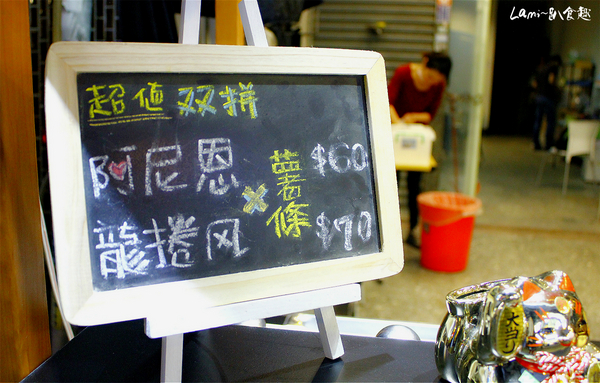 Lami~趴食趣
超值双拼
阿尼恩 $60
x 薯條
龍捲风 $70
大当